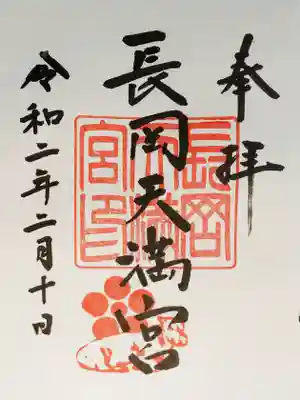 奉拝
長岡天満宮
長岡天満宮印
令和二年二月十日